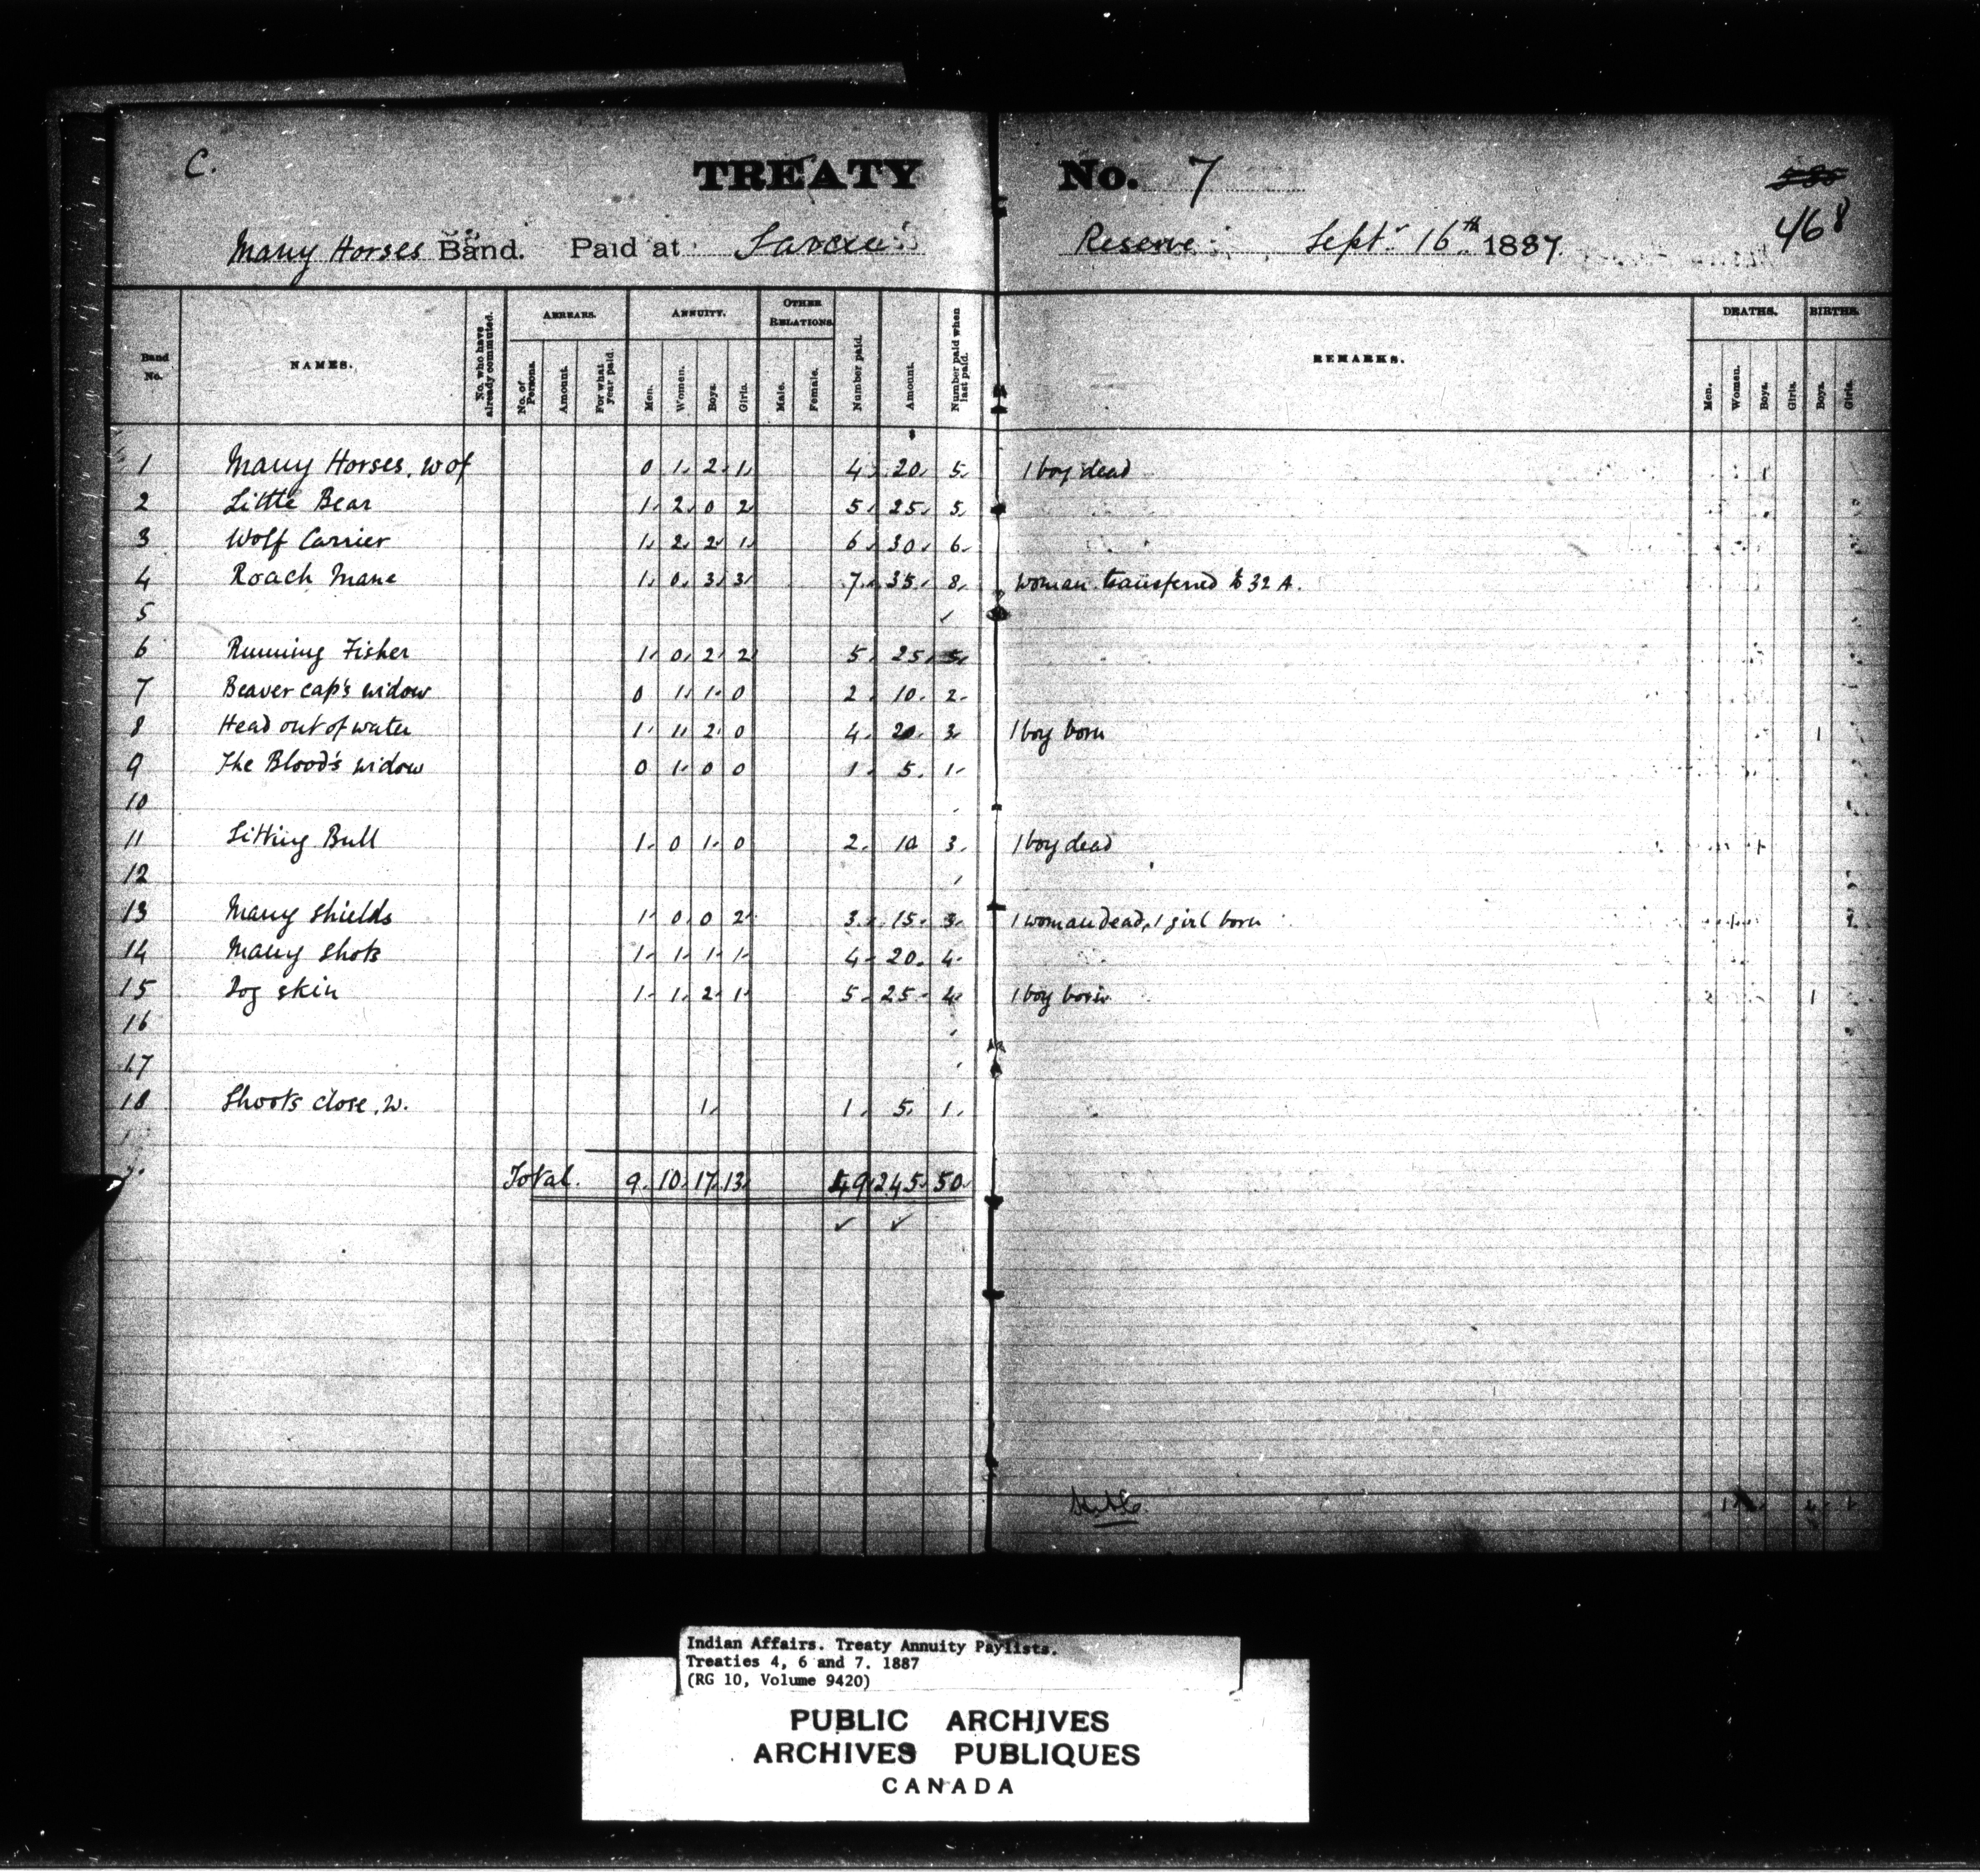 C. TREATY No. 7 585
Many Horses Band. Paid at Sarcee Reserve Sept. 16th 1887. 468
Band No. NAMES. No. who have already commuted. ARREARS. No. of Persons. Amount. For what year paid. ANNUITY. Men. Women. Boys. Girls. OTHER RELATIONS. Male. Female. Number paid. Amount. Number paid when last paid. REMARKS. DEATHS. Men. Women. Boys. Girls. BIRTHS. Boys. Girls.
1 Many Horses, w of 0 1 2 1 4 20 5 1 boy dead 1
2 Little Bear 1 2 0 2 5 25 5
3 Wolf Carrier 1 2 2 1 6 30 6
4 Roach Mane 1 0 3 3 7 35 8 woman transferred to 32 A.
5
6 Running Fisher 1 0 2 2 5 25 5
7 Beaver cap's widow 0 1 1 0 2 10 2
8 Head out of water 1 1 2 0 4 20 3 1 boy born 1
9 The Blood's widow 0 1 0 0 1 5 1
10
11 Sitting Bull 1 0 1 0 2 10 3 1 boy dead 1
12
13 Many Shields 1 0 0 2 3 15 3 1 woman dead, 1 girl born
14 Many Shots 1 1 1 1 4 20 4
15 Dog skin 1 1 2 1 5 25 4 1 boy born 1
16
17
18 Shoots close, w. 1 1 5 1
Total. 9 10 17 13 49 245 50
Indian Affairs. Treaty Annuity Paylists.
Treaties 4, 6 and 7. 1887
(RG 10, Volume 9420)
PUBLIC ARCHIVES
ARCHIVES PUBLIQUES
CANADA